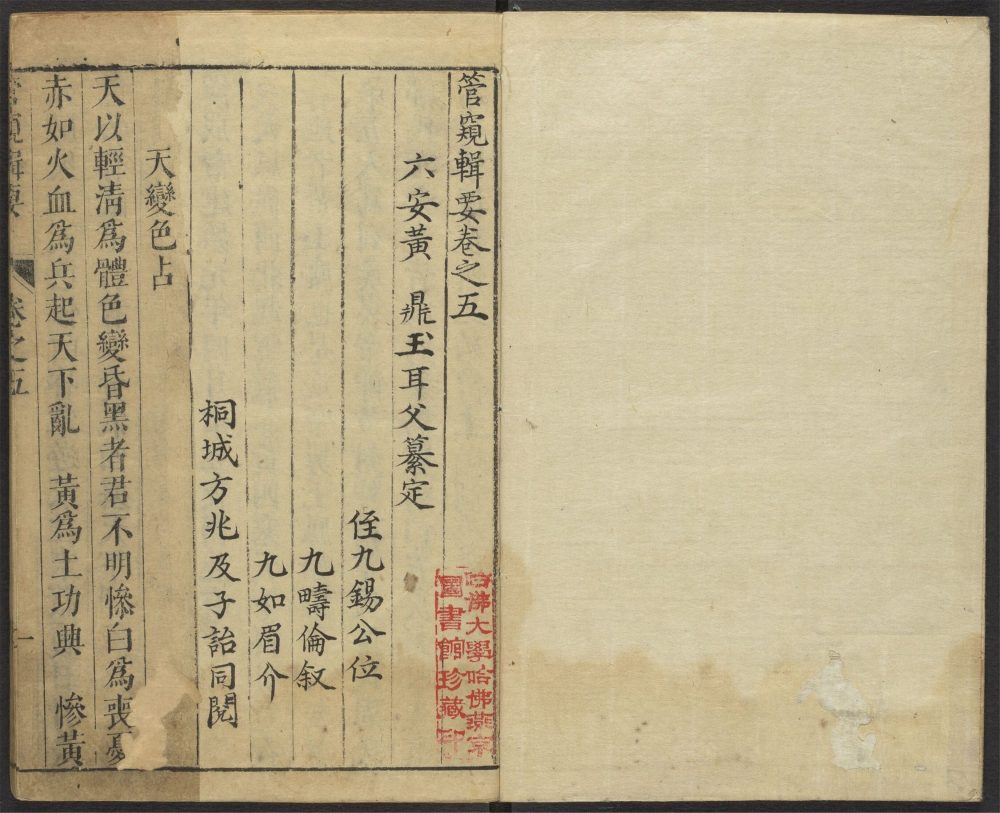 管窺輯要卷之五
六安黃 鼎玉耳父纂定
侄九錫公位
九疇倫叙
九如眉介
桐城方兆及子詒同閱
天變色占
天以輕淸爲體色變昏黑者君不明慘白爲喪憂
赤如火血爲兵起天下亂 黃爲土功典 慘黃
管窺輯要 卷之五 一
哈佛大學哈佛燕京
圖書館珍藏印